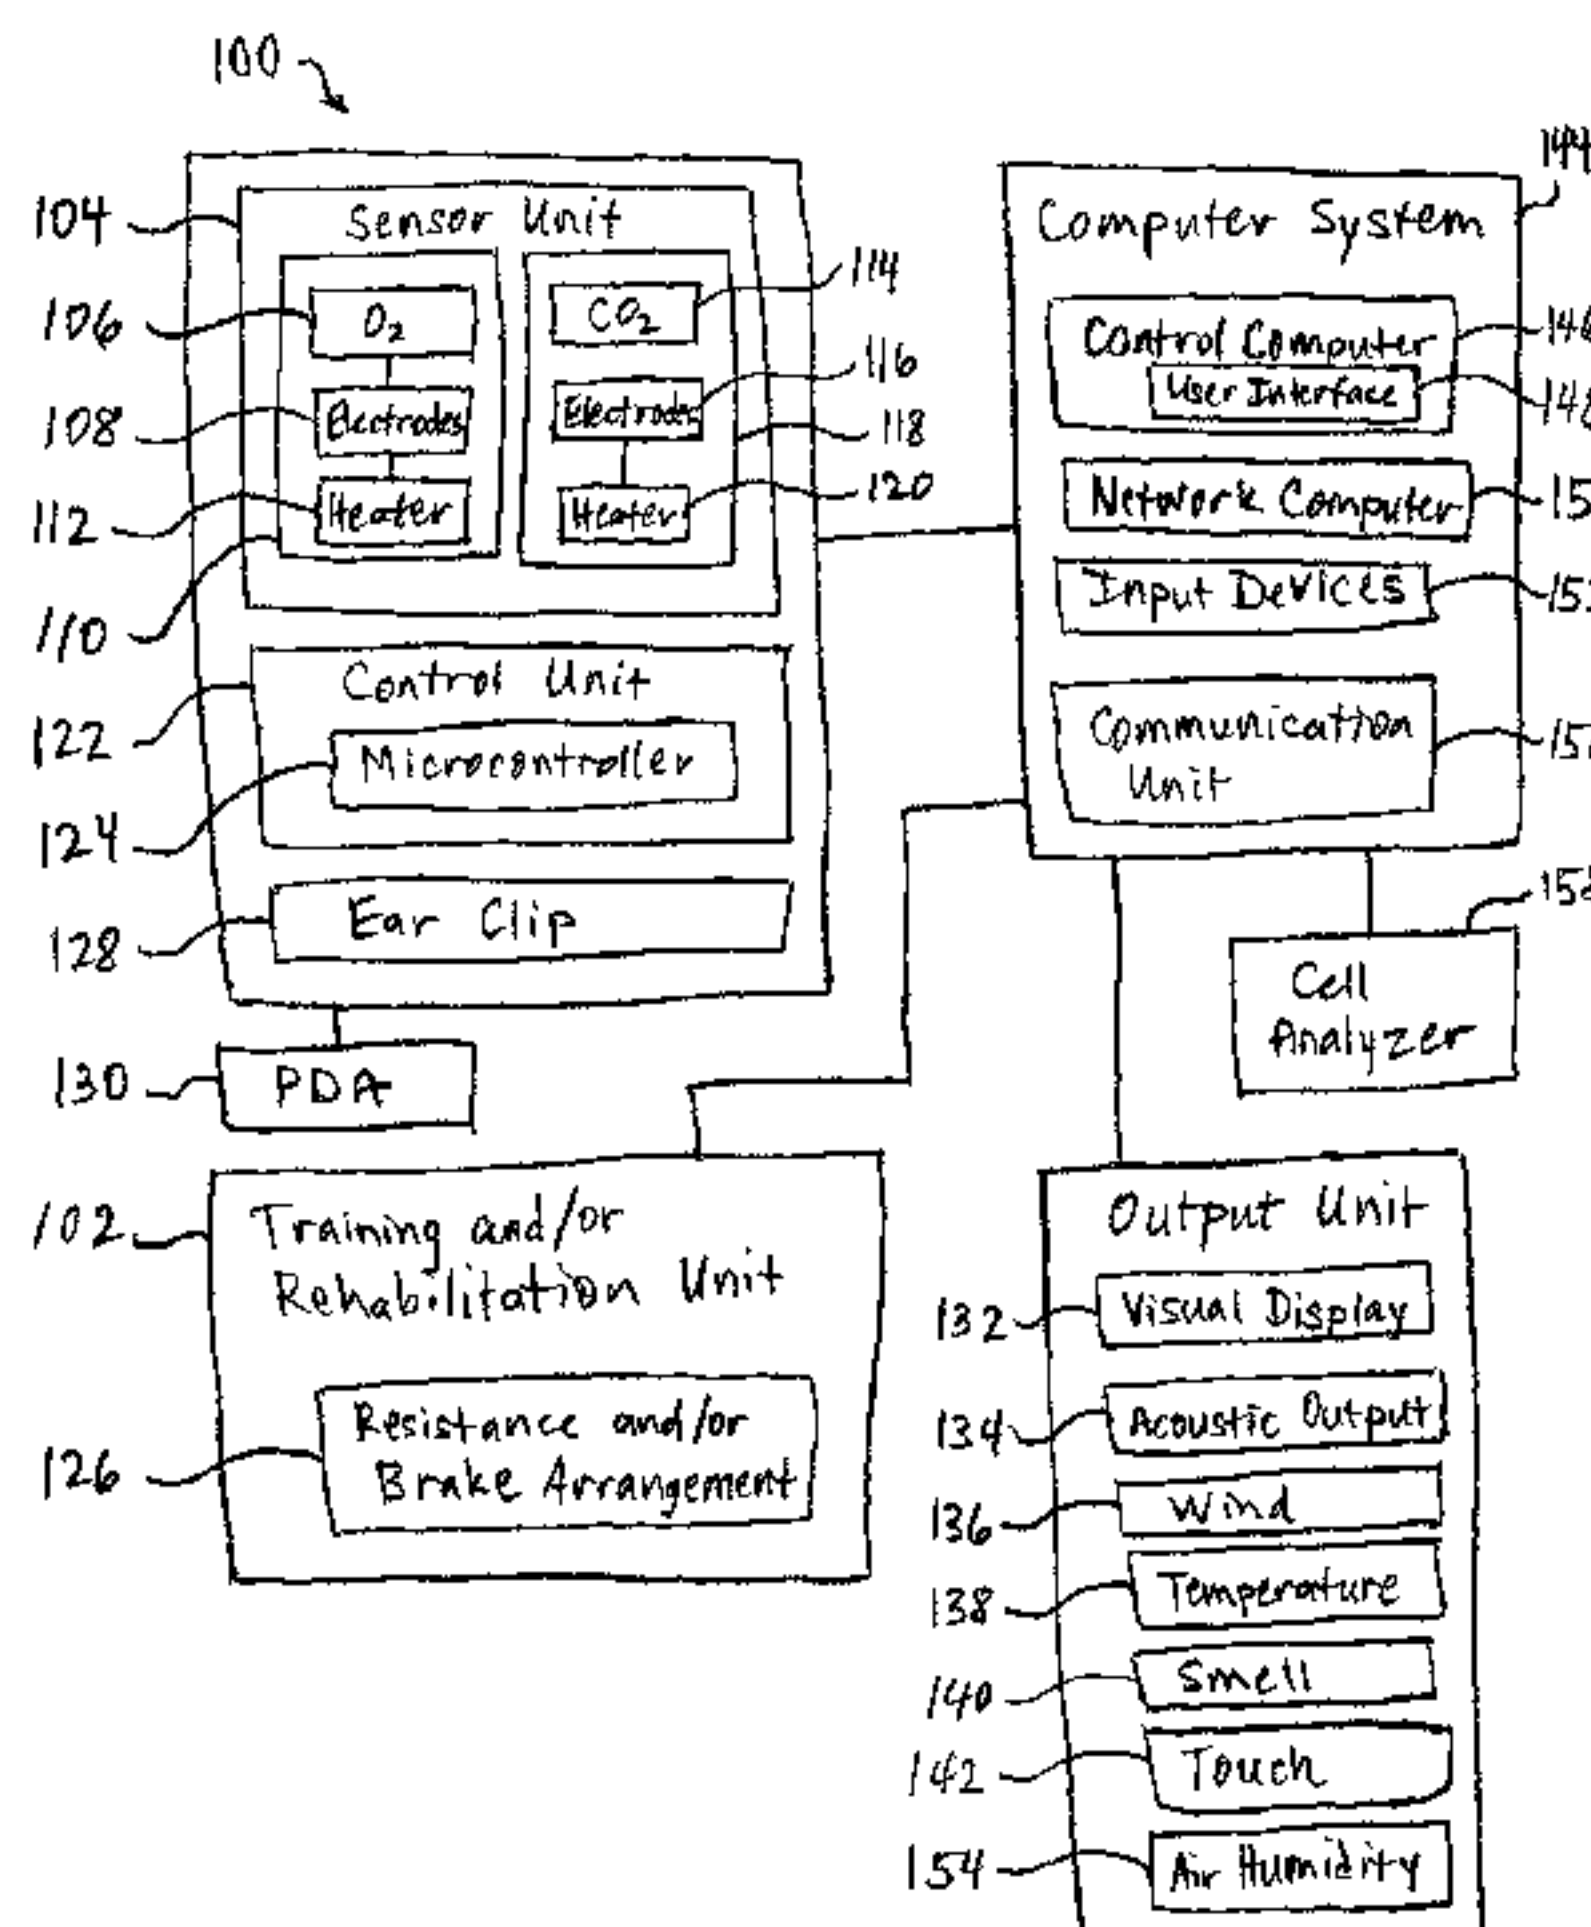 100
104
Sensor Unit
106
O₂
CO₂
114
108
Electrodes
Electrodes
116
118
112
Heater
Heater
120
110
122
Control Unit
124
Microcontroller
128
Ear Clip
130
PDA
102
Training and/or
Rehabilitation Unit
126
Resistance and/or
Brake Arrangement
144
Computer System
Control Computer
User Interface
Network Computer
Input Devices
Communication
Unit
Cell
Analyzer
Output Unit
132
Visual Display
134
Acoustic Output
136
Wind
138
Temperature
140
Smell
142
Touch
154
Air Humidity